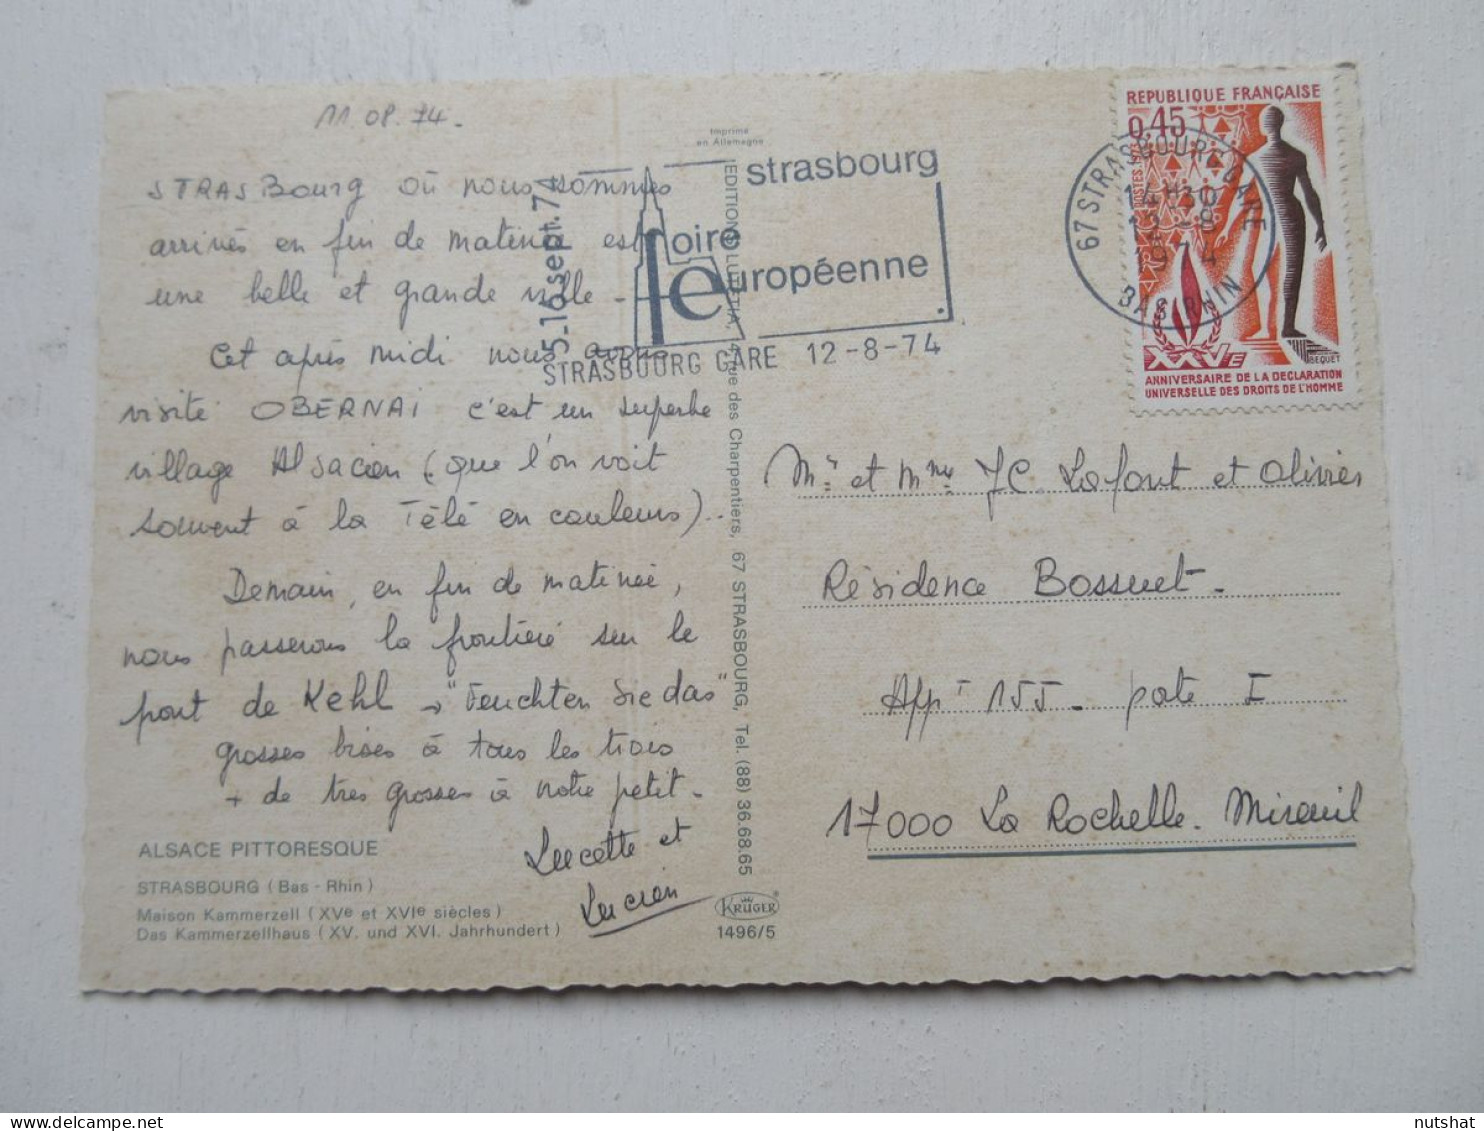 11.08.74.
STRASBOURG où nous sommes
arrivés en fin de matinée est
une belle et grande ville.
Cet après midi nous avons
visité OBERNAI c'est un superbe
village Alsacien (que l'on voit
souvent à la Télé en couleurs)..
Demain, en fin de matinée,
nous passerons la frontière sur le
pont de Kehl → "Feuchten Sie das"
grosses bises à tous les trois
+ de très grosses à notre petit.
Lucette et
Lucien
ALSACE PITTORESQUE
STRASBOURG (Bas - Rhin)
Maison Kammerzell (XVe et XVIe siècles)
Das Kammerzellhaus (XV. und XVI. Jahrhundert)
Imprimé
en Allemagne
EDITIONS LUTETIA, rue des Charpentiers, 67 STRASBOURG, Tel. (88) 36.68.65
KRÜGER
1496/5
5-16 sept. 74
strasbourg
foire
européenne
STRASBOURG GARE 12-8-74
67 STRASBOURG GARE
14H30
12-8
1974
BAS-RHIN
REPUBLIQUE FRANÇAISE
0,45
POSTES
XXVE
BEQUET
ANNIVERSAIRE DE LA DECLARATION
UNIVERSELLE DES DROITS DE L'HOMME
Mr et Mme JC Lafont et Olivier
Résidence Bossuet.
Appt 155 - porte I
17000 La Rochelle. Mireuil
nutshat
delcampe.net